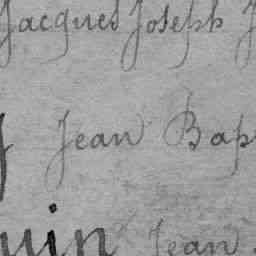 Jacques Joseph J
Jean Bap
uin Jean